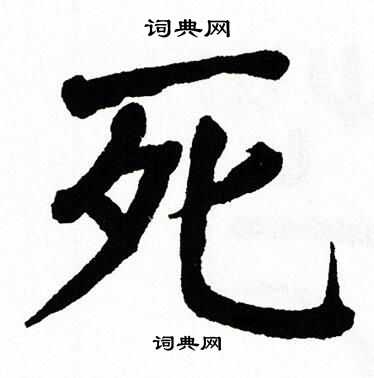 词典网
死
词典网